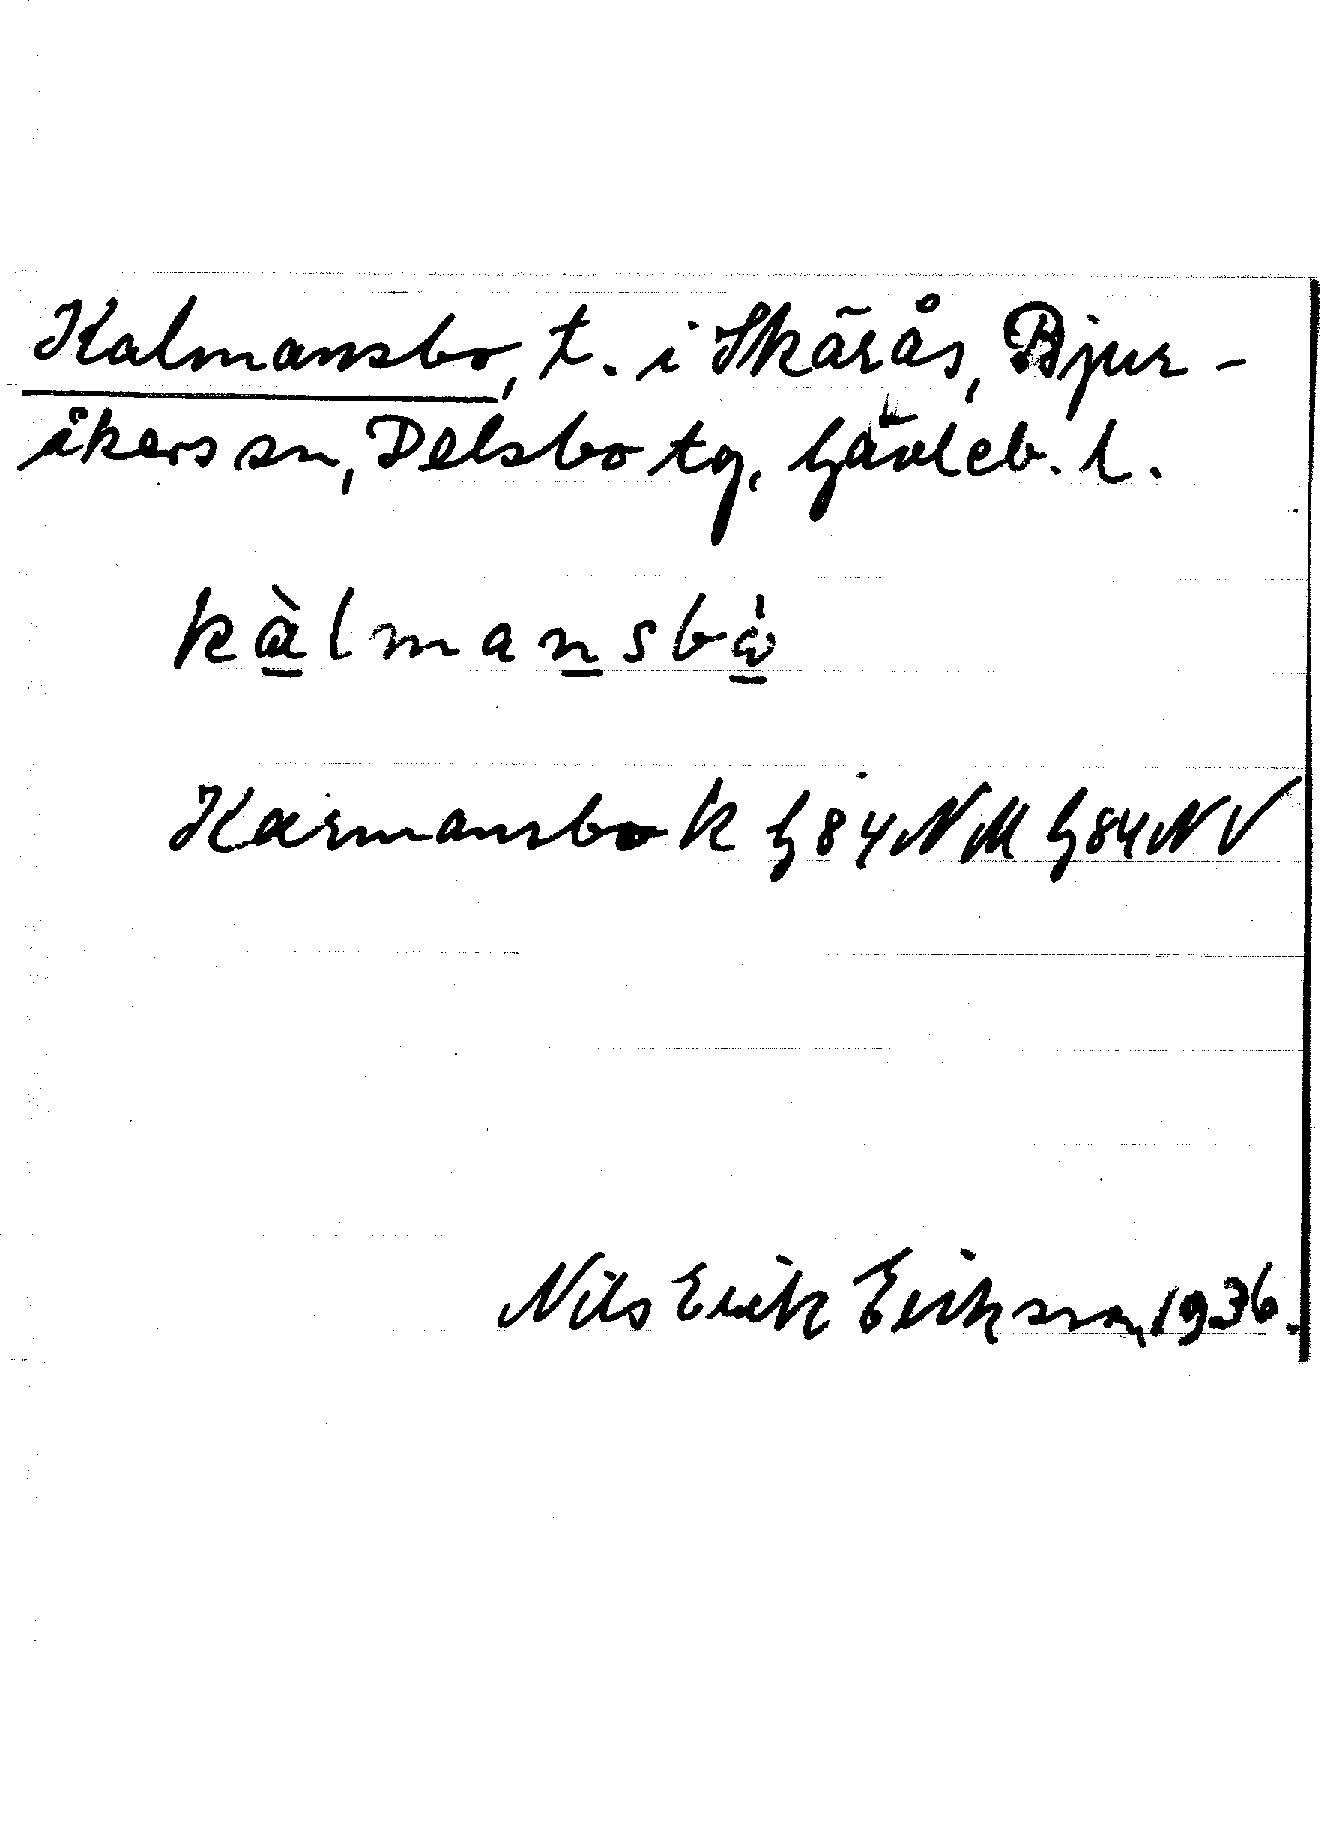 Kalmansbo, t. i Skärås, Bjur-
åkers sn, Delsbo tg, Gävleb. l.
kàlmansbὼ
Karmansbo k G84NM G84NV
Nils Erik Eriksson, 1936.